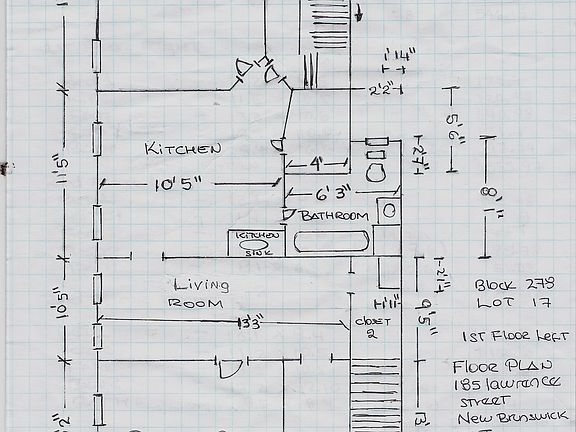 1'14"
2'2"
5'6"
KITCHEN
11'5"
4'
2'7"
10'5"
6'3"
8'1"
BATHROOM
KITCHEN
SINK
Living
ROOM
2'1"
Block 278
LOT 17
10'5"
13'3"
1'11"
closet
2
9'5"
1ST Floor Left
Floor PLAN
185 lawrence
street
New Brunswick
2"